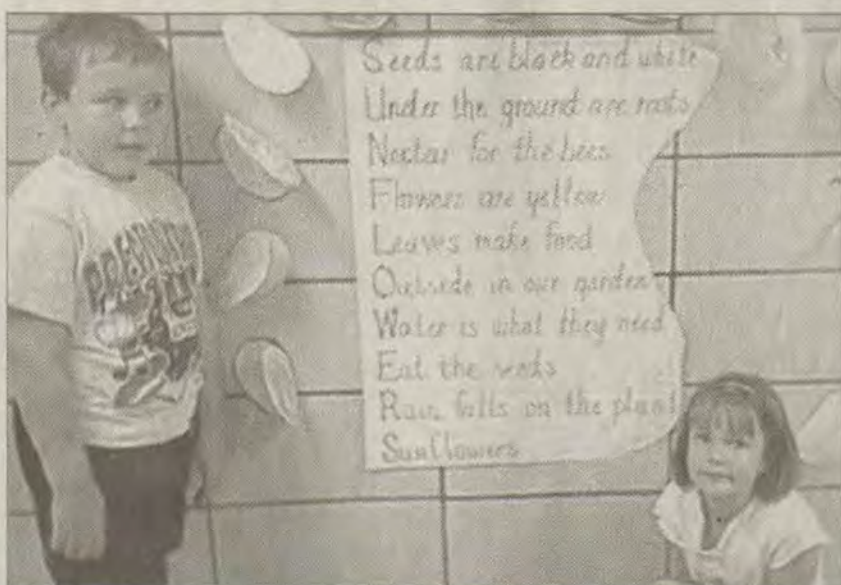 Seeds are black and white
Under the ground are roots
Nectar for the bees
Flowers are yellow
Leaves make food
Outside in our garden
Water is what they need
Eat the seeds
Rain falls on the plant
Sunflowers